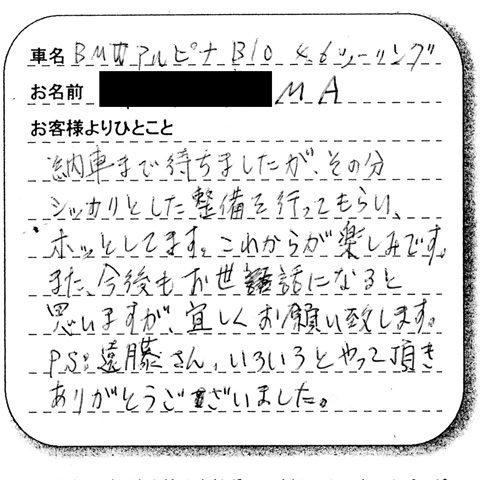 車名 BMW アルピナ B10 4.6ツーリング
お名前 MA
お客様よりひとこと
納車まで待ちましたが、その分
シッカリとした整備を行ってもらい、
ホッとしてます。これからが楽しみです。
また、今後もお世話になると
思いますが、宜しくお願い致します。
P.S:遠藤さん、いろいろとやって頂き
ありがとうございました。